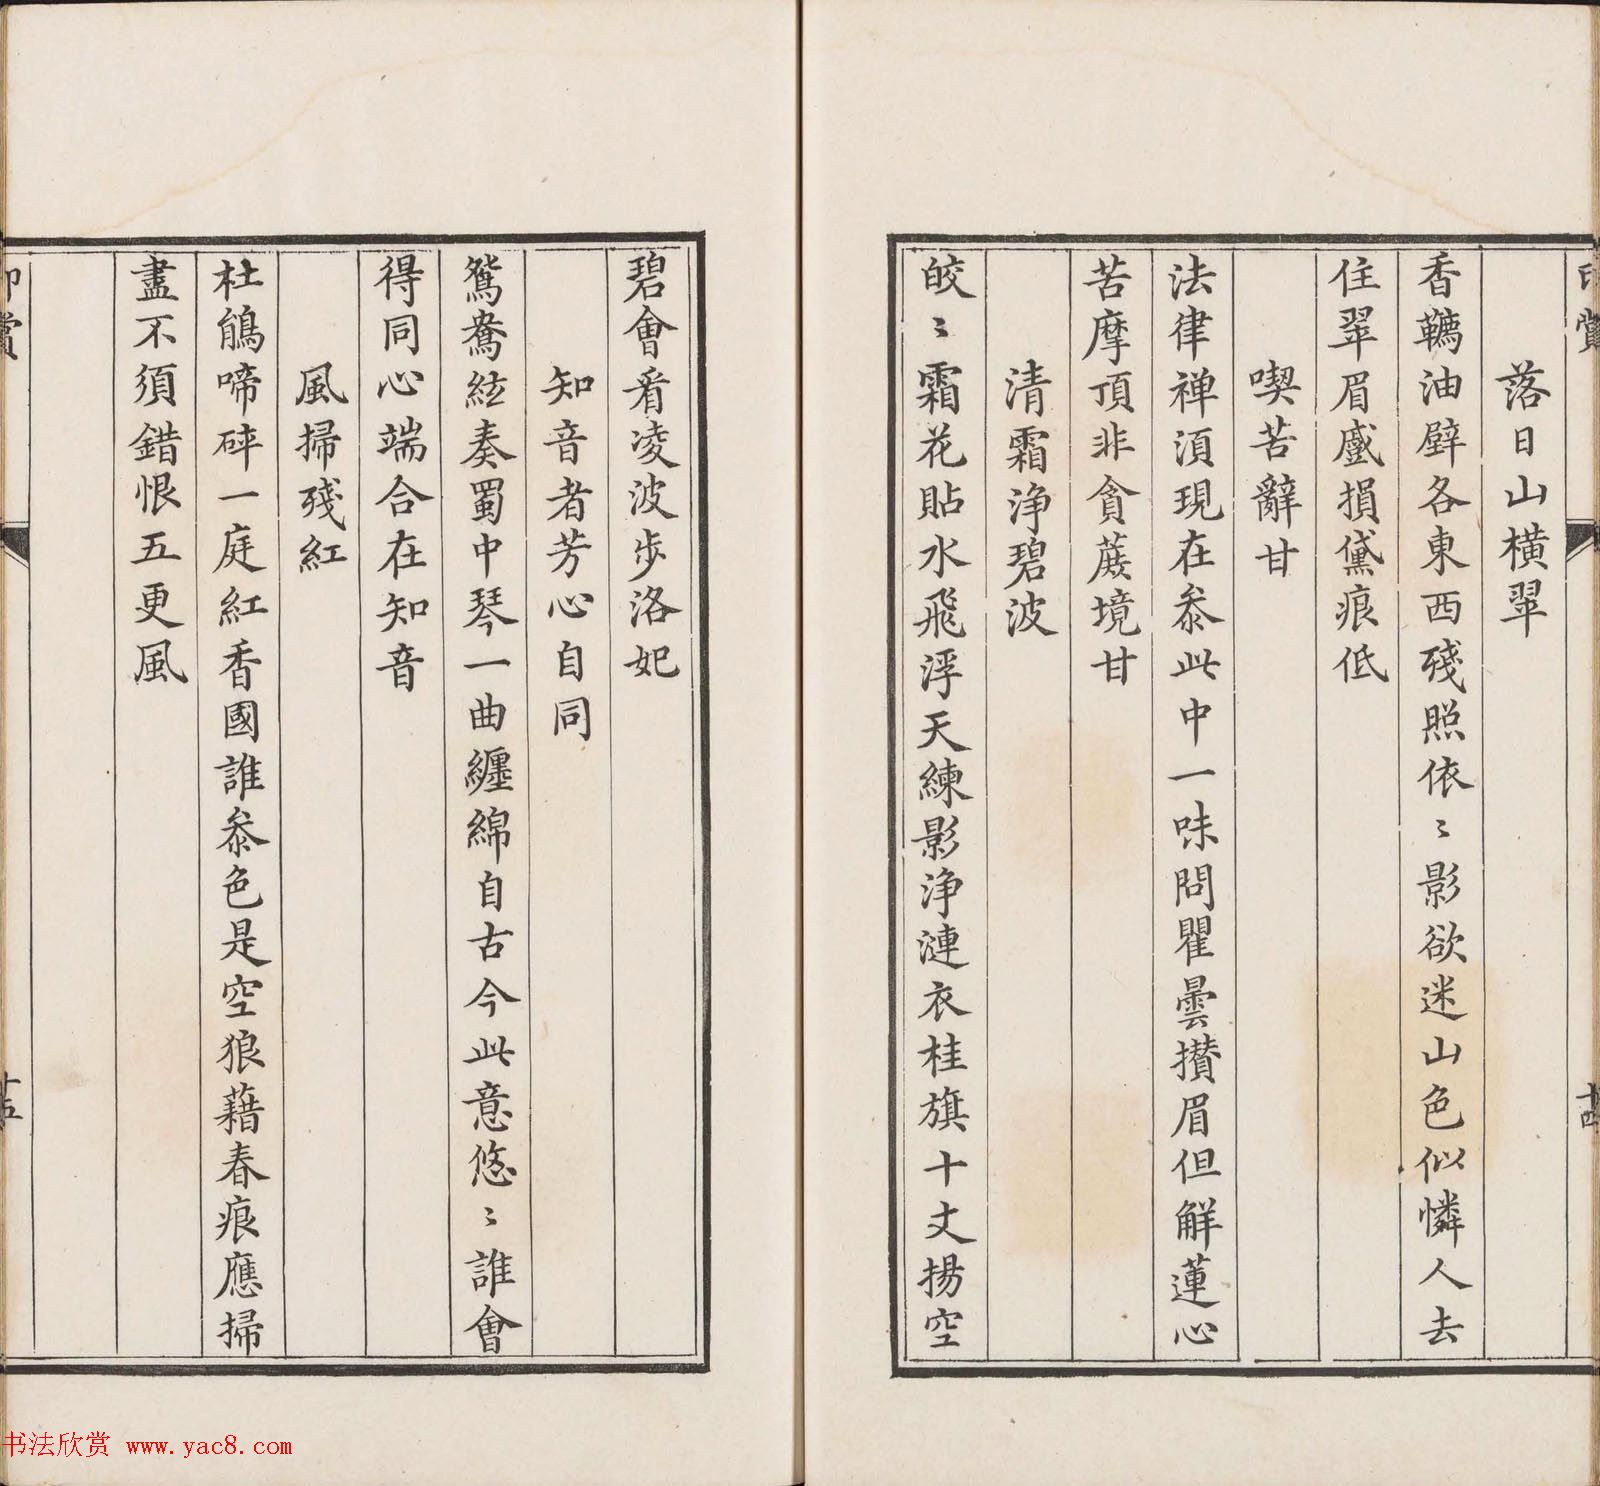 印賞
十四
落日山橫翠
香韉油壁各東西殘照依〻影欲迷山色似憐人去
住翠眉蹙損黛痕低
喫苦辭甘
法律禅須現在叅此中一味問瞿曇攢眉但解蓮心
苦摩頂非貪蔗境甘
清霜浄碧波
皎〻霜花貼水飛浮天練影浄漣衣桂旗十丈揚空
碧會看凌波步洛妃
知音者芳心自同
鴛鴦絃奏蜀中琴一曲纏綿自古今此意悠〻誰會
得同心端合在知音
風掃殘紅
杜鵑啼碎一庭紅香國誰叅色是空狼藉春痕應掃
盡不須錯恨五更風
印賞
十五
书法欣赏 www.yac8.com